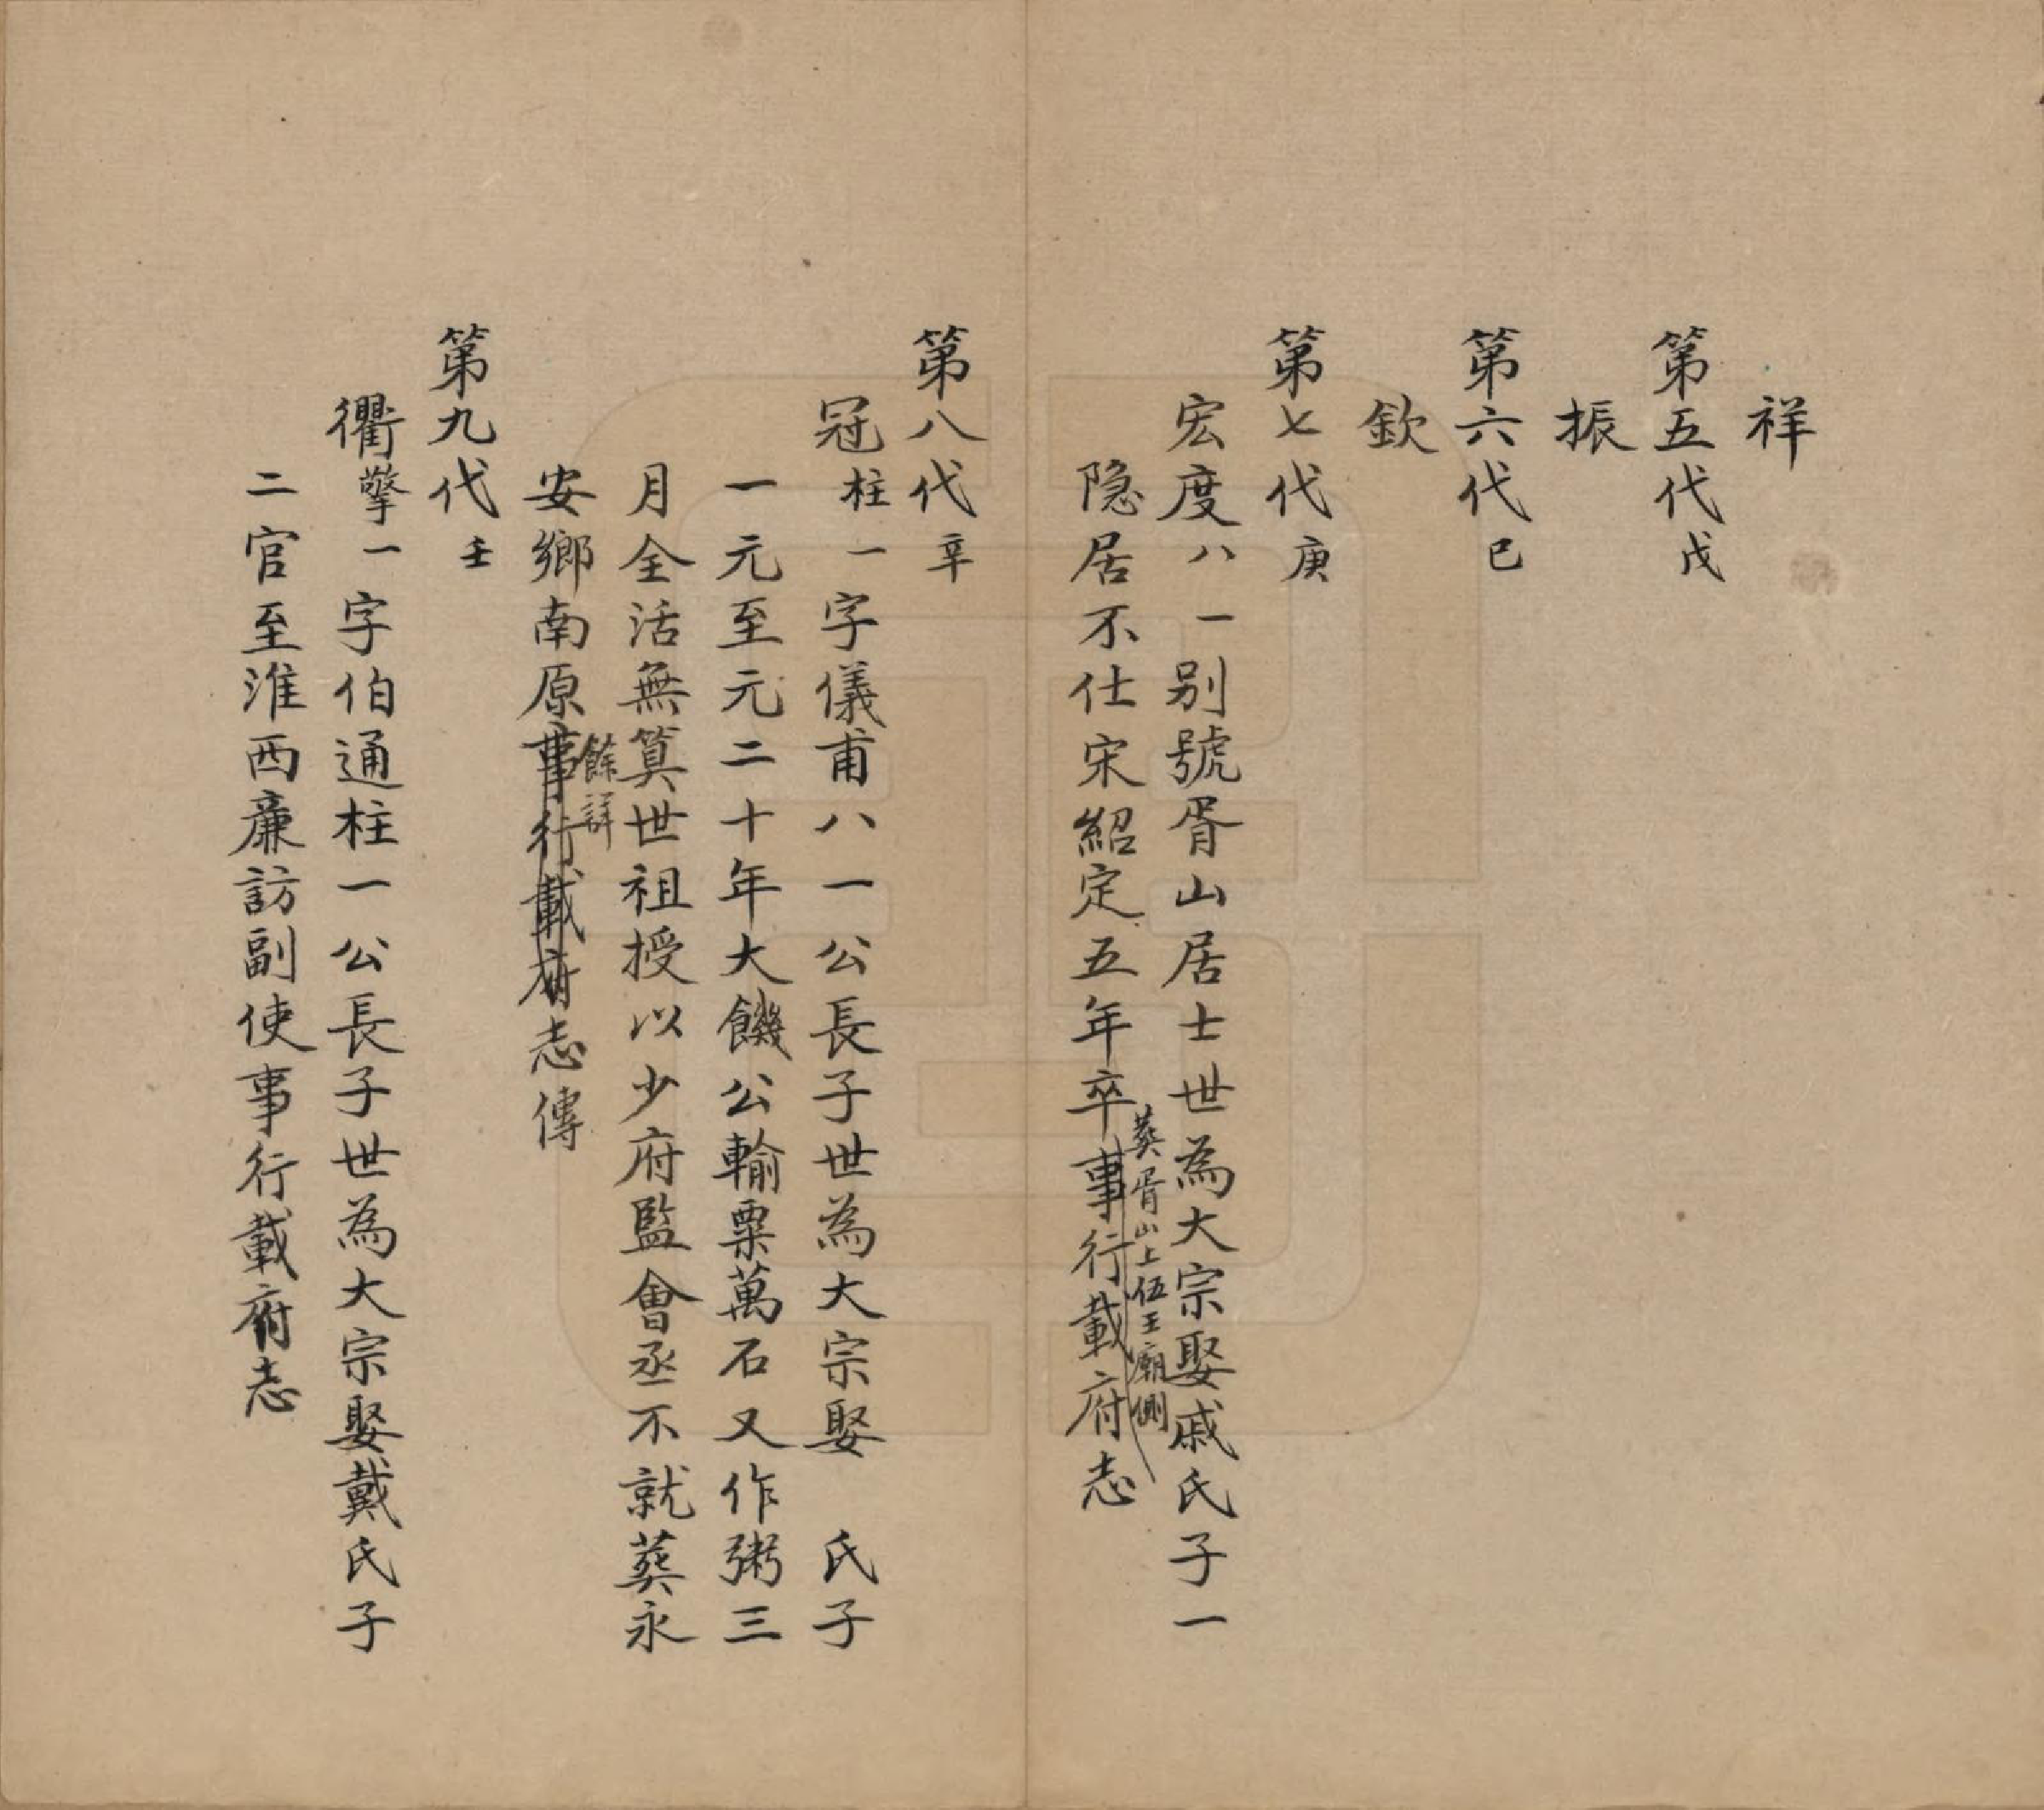 祥
第五代戊
振
第六代己
欽
第七代庚
宏度八一别號胥山居士世為大宗娶戚氏子一
隐居不仕宋紹定五年卒事行載府志
葵胥山上伍王廟側
第八代辛
冠柱一字儀甫八一公長子世為大宗娶　氏子
一元至元二十年大饑公輸粟萬石又作粥三
月全活無算世祖授以少府監會丞不就葵永
安鄉南原事行載府志傳
餘詳
第九代壬
衢擎一字伯通柱一公長子世為大宗娶戴氏子
二官至淮西廉訪副使事行載府志